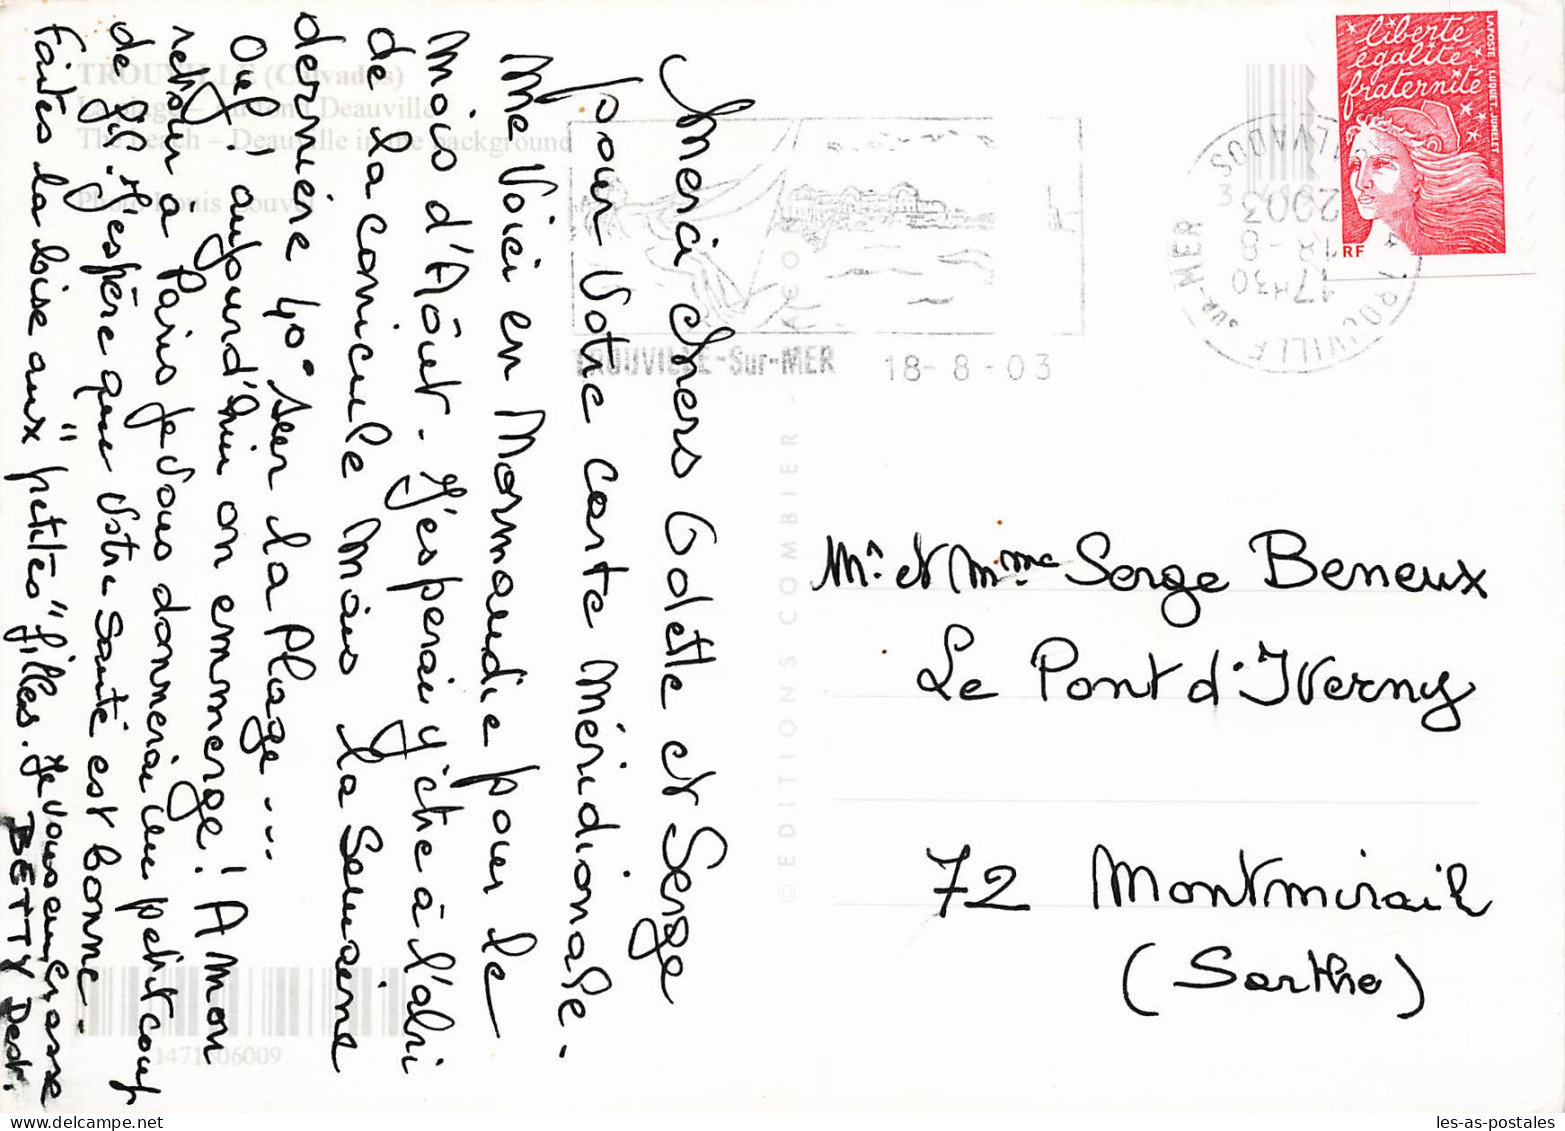 TROUVILLE (Calvados)
La plage – Au fond Deauville
The beach – Deauville in the background
Photo Louis
Merci chers Odette et Serge
pour votre carte méridionale.
Me voici en Normandie pour le
mois d'Août. J'esperais y être à l'abri
de la canicule mais la semaine
dernière 40° sur la plage....
Ouf! aujourd'hui on emmerge! A mon
retour à Paris je vous donnerai un petit coup
de fil. J'espère que votre santé est bonne.
Faites la bise aux "petites" filles. Je vous embrasse
BETTY
1471606009
© EDITIONS COMBIER
TROUVILLE-Sur-MER 18-8-03
TROUVILLE SUR-MER
CALVADOS
17H30
18-8
2003
liberté
égalité
fraternité
RF
LA POSTE LUQUET-JUMELET
Mr et Mme Serge Beneux
Le Pont d'Iverny
72 Montmirail
(Sarthe)
les-as-postales